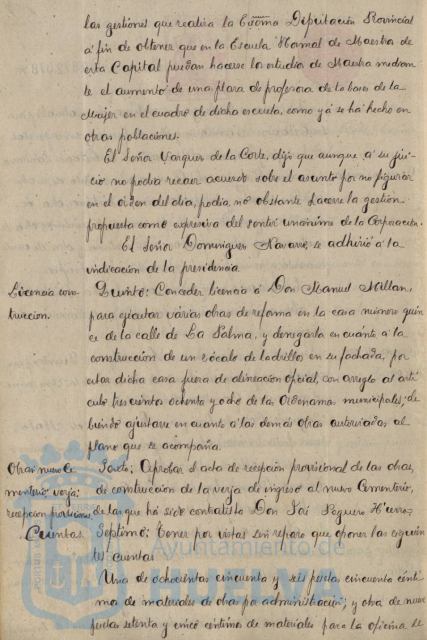 las gestiones que realiza la Excma Diputación Provincial
á fin de obtener que en la Escuela Normal de Maestros de
esta Capital puedan hacerse los estudios de Maestra median-
te el aumento de una plaza de profesora de labores de la
Mujer en el cuadro de dicha escuela, como yá se há hecho en
otras poblaciones.
El Señor Vazquez de la Corte, dijo que aunque á su jui-
cio no podia recaer acuerdo sobre el asunto por no figurar
en el órden del dia, podia, no obstante hacerse la gestión
propuesta como expresiva del sentir unánime de la Corporación.
El Señor Dominguez Navarro, se adhirió á la
indicación de la presidencia
Licencia cons-
truccion.
Quinto: Conceder licencia á Don Manuel Millan,
para ejecutar várias obras de reforma en la casa número quin-
ce de la calle de La Palma, y denegarla en cuánto á la
construcción de un zócalo de ladrillos en su fachada, por
estar dicha casa fuera de alineación oficial, con arreglo al artí-
culo trescientos ochenta y ocho de las Ordenanzas municipales, de-
biendo ajustarse en cuanto á las demás obras autorizadas al
plano que se acompaña.
Obras nuevo Ce-
menterio, verja:
recepción provisional.
Sexto: Aprobar el acta de recepción provisional de las obras,
de construcción de la verja de ingreso al nuevo Cementerio,
de las que há sido contratista Don José Seguro Hierro,
Cuentas.
Séptimo: Tener por vistas sin reparo que oponer las siguien-
tes cuentas
Una de ochocientas cincuenta y seis pesetas cincuenta cénti-
mos de materiales de obras por administración; y otra de nueve
pesetas setenta y cinco céntimos de materiales para la oficina de
Ayuntamiento de
HUELVA